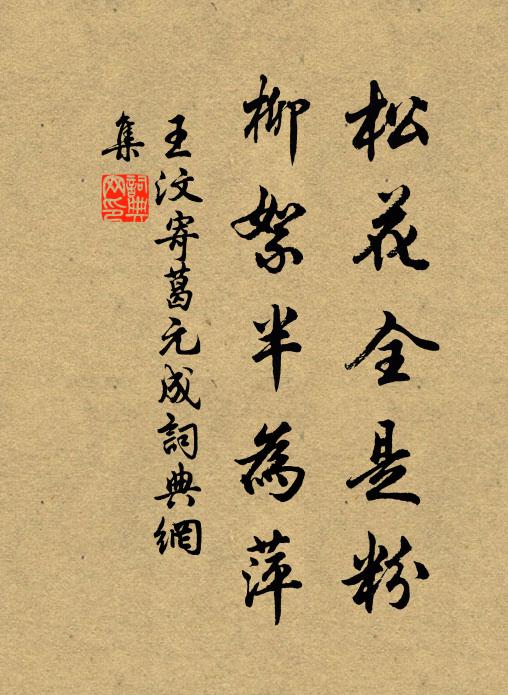 松花全是粉
柳絮半為萍
王汶寄葛元成詞典網
集
詞典網印